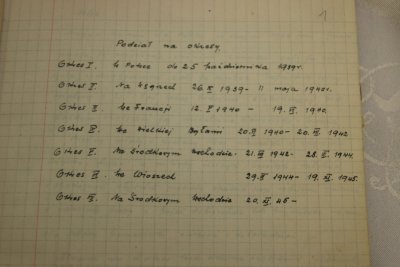 1
Podział na okresy.
Okres I. W Polsce do 25 października 1939r.
Okres II. Na Węgrzech 26.X 1939 - 11 maja 1940r.
Okres III. We Francji 12.V 1940 - 19.VI 1940.
Okres IV. We Wielkiej Brytanii 20.VI 1940 - 20.VI 1942
Okres V. Na Środkowym Wschodzie. 21.VI 1942 - 28.II 1944.
Okres VI. We Włoszech 29.II 1944 - 19.XI 1945.
Okres VII. Na Środkowym Wschodzie 20.XI 45 -